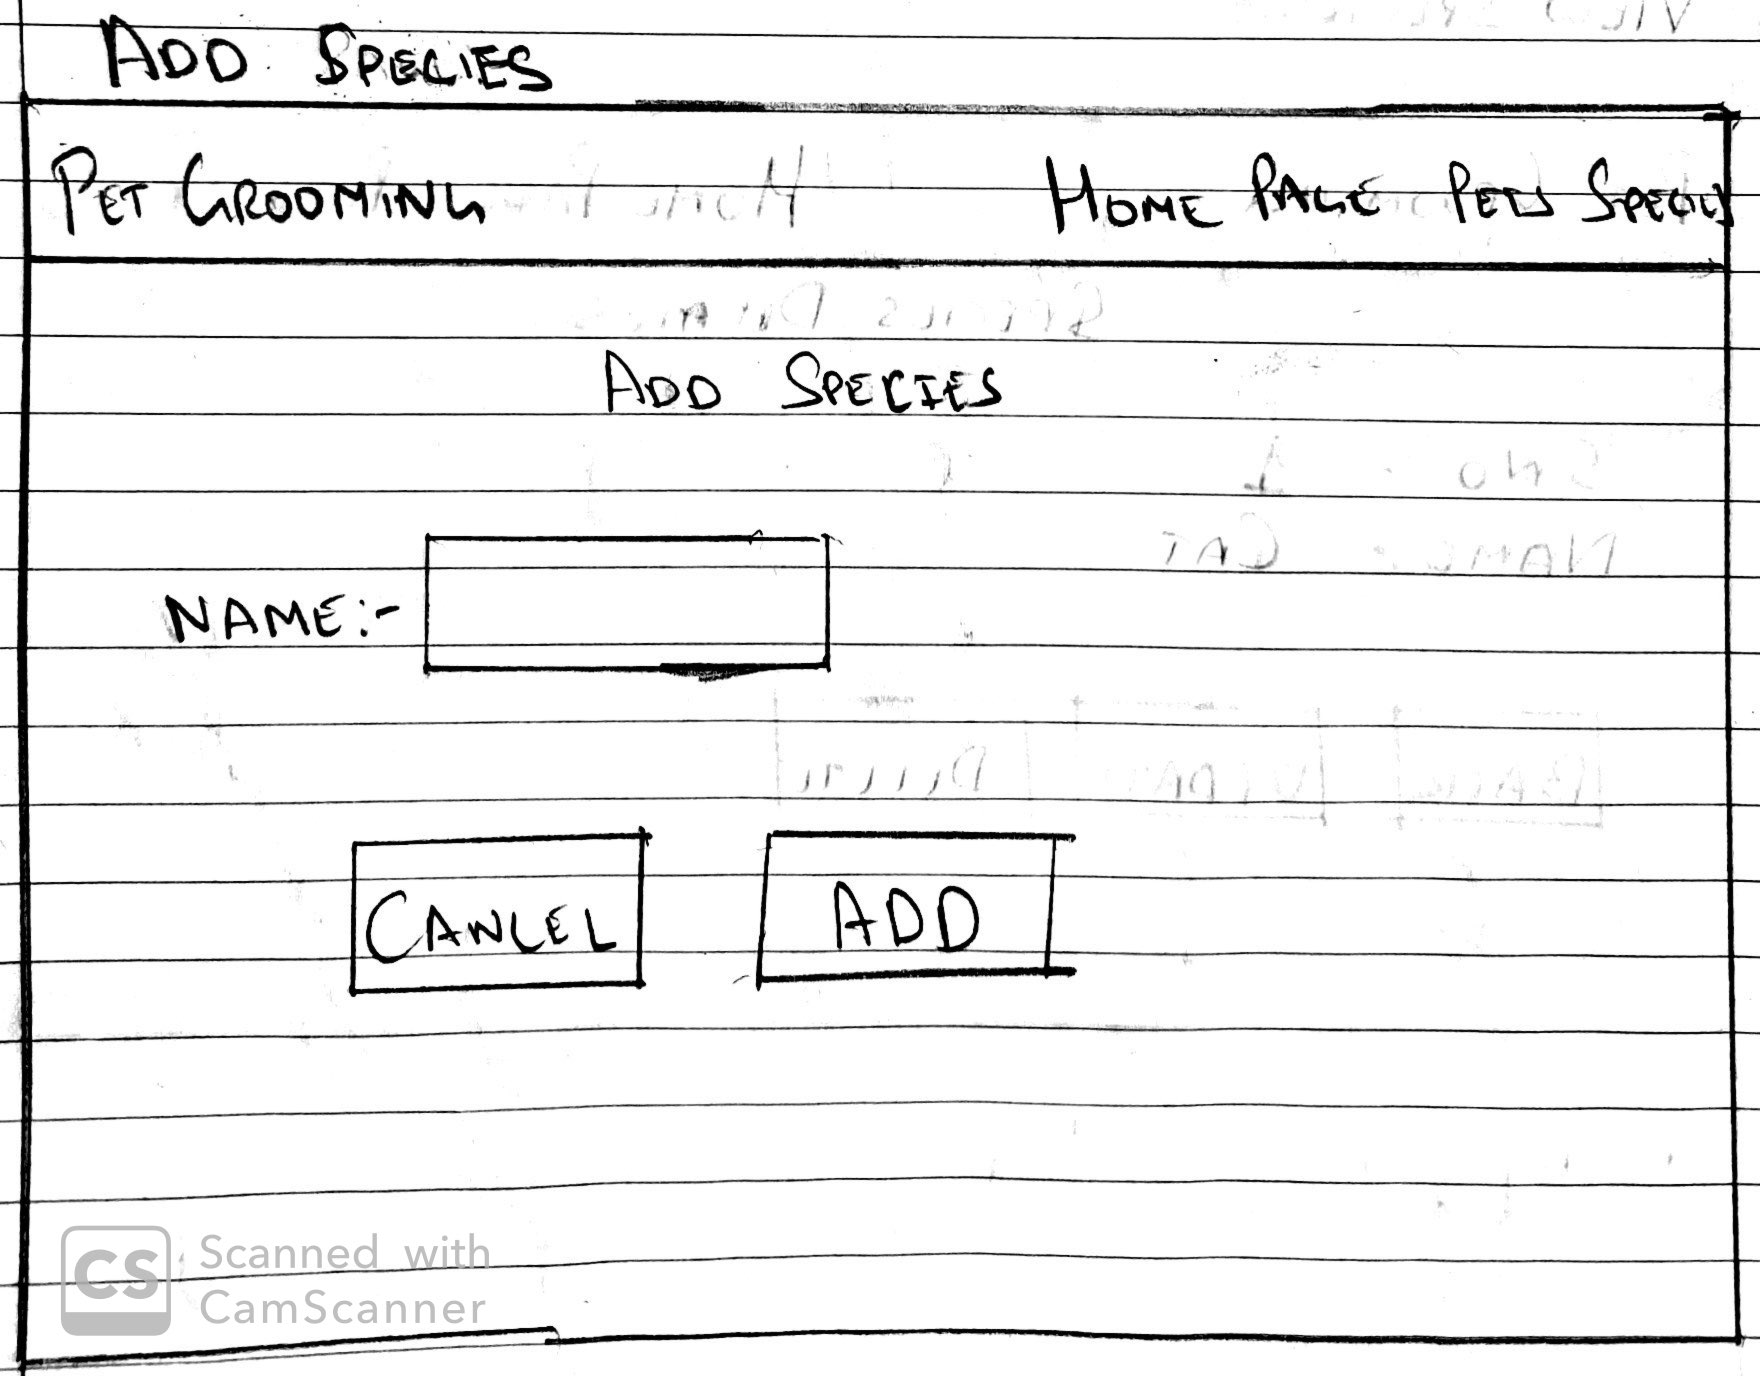 ADD SPECIES
PET GROOMING HOME PAGE PETS SPECIES
ADD SPECIES
NAME:-
CANCEL ADD
CS Scanned with
CamScanner